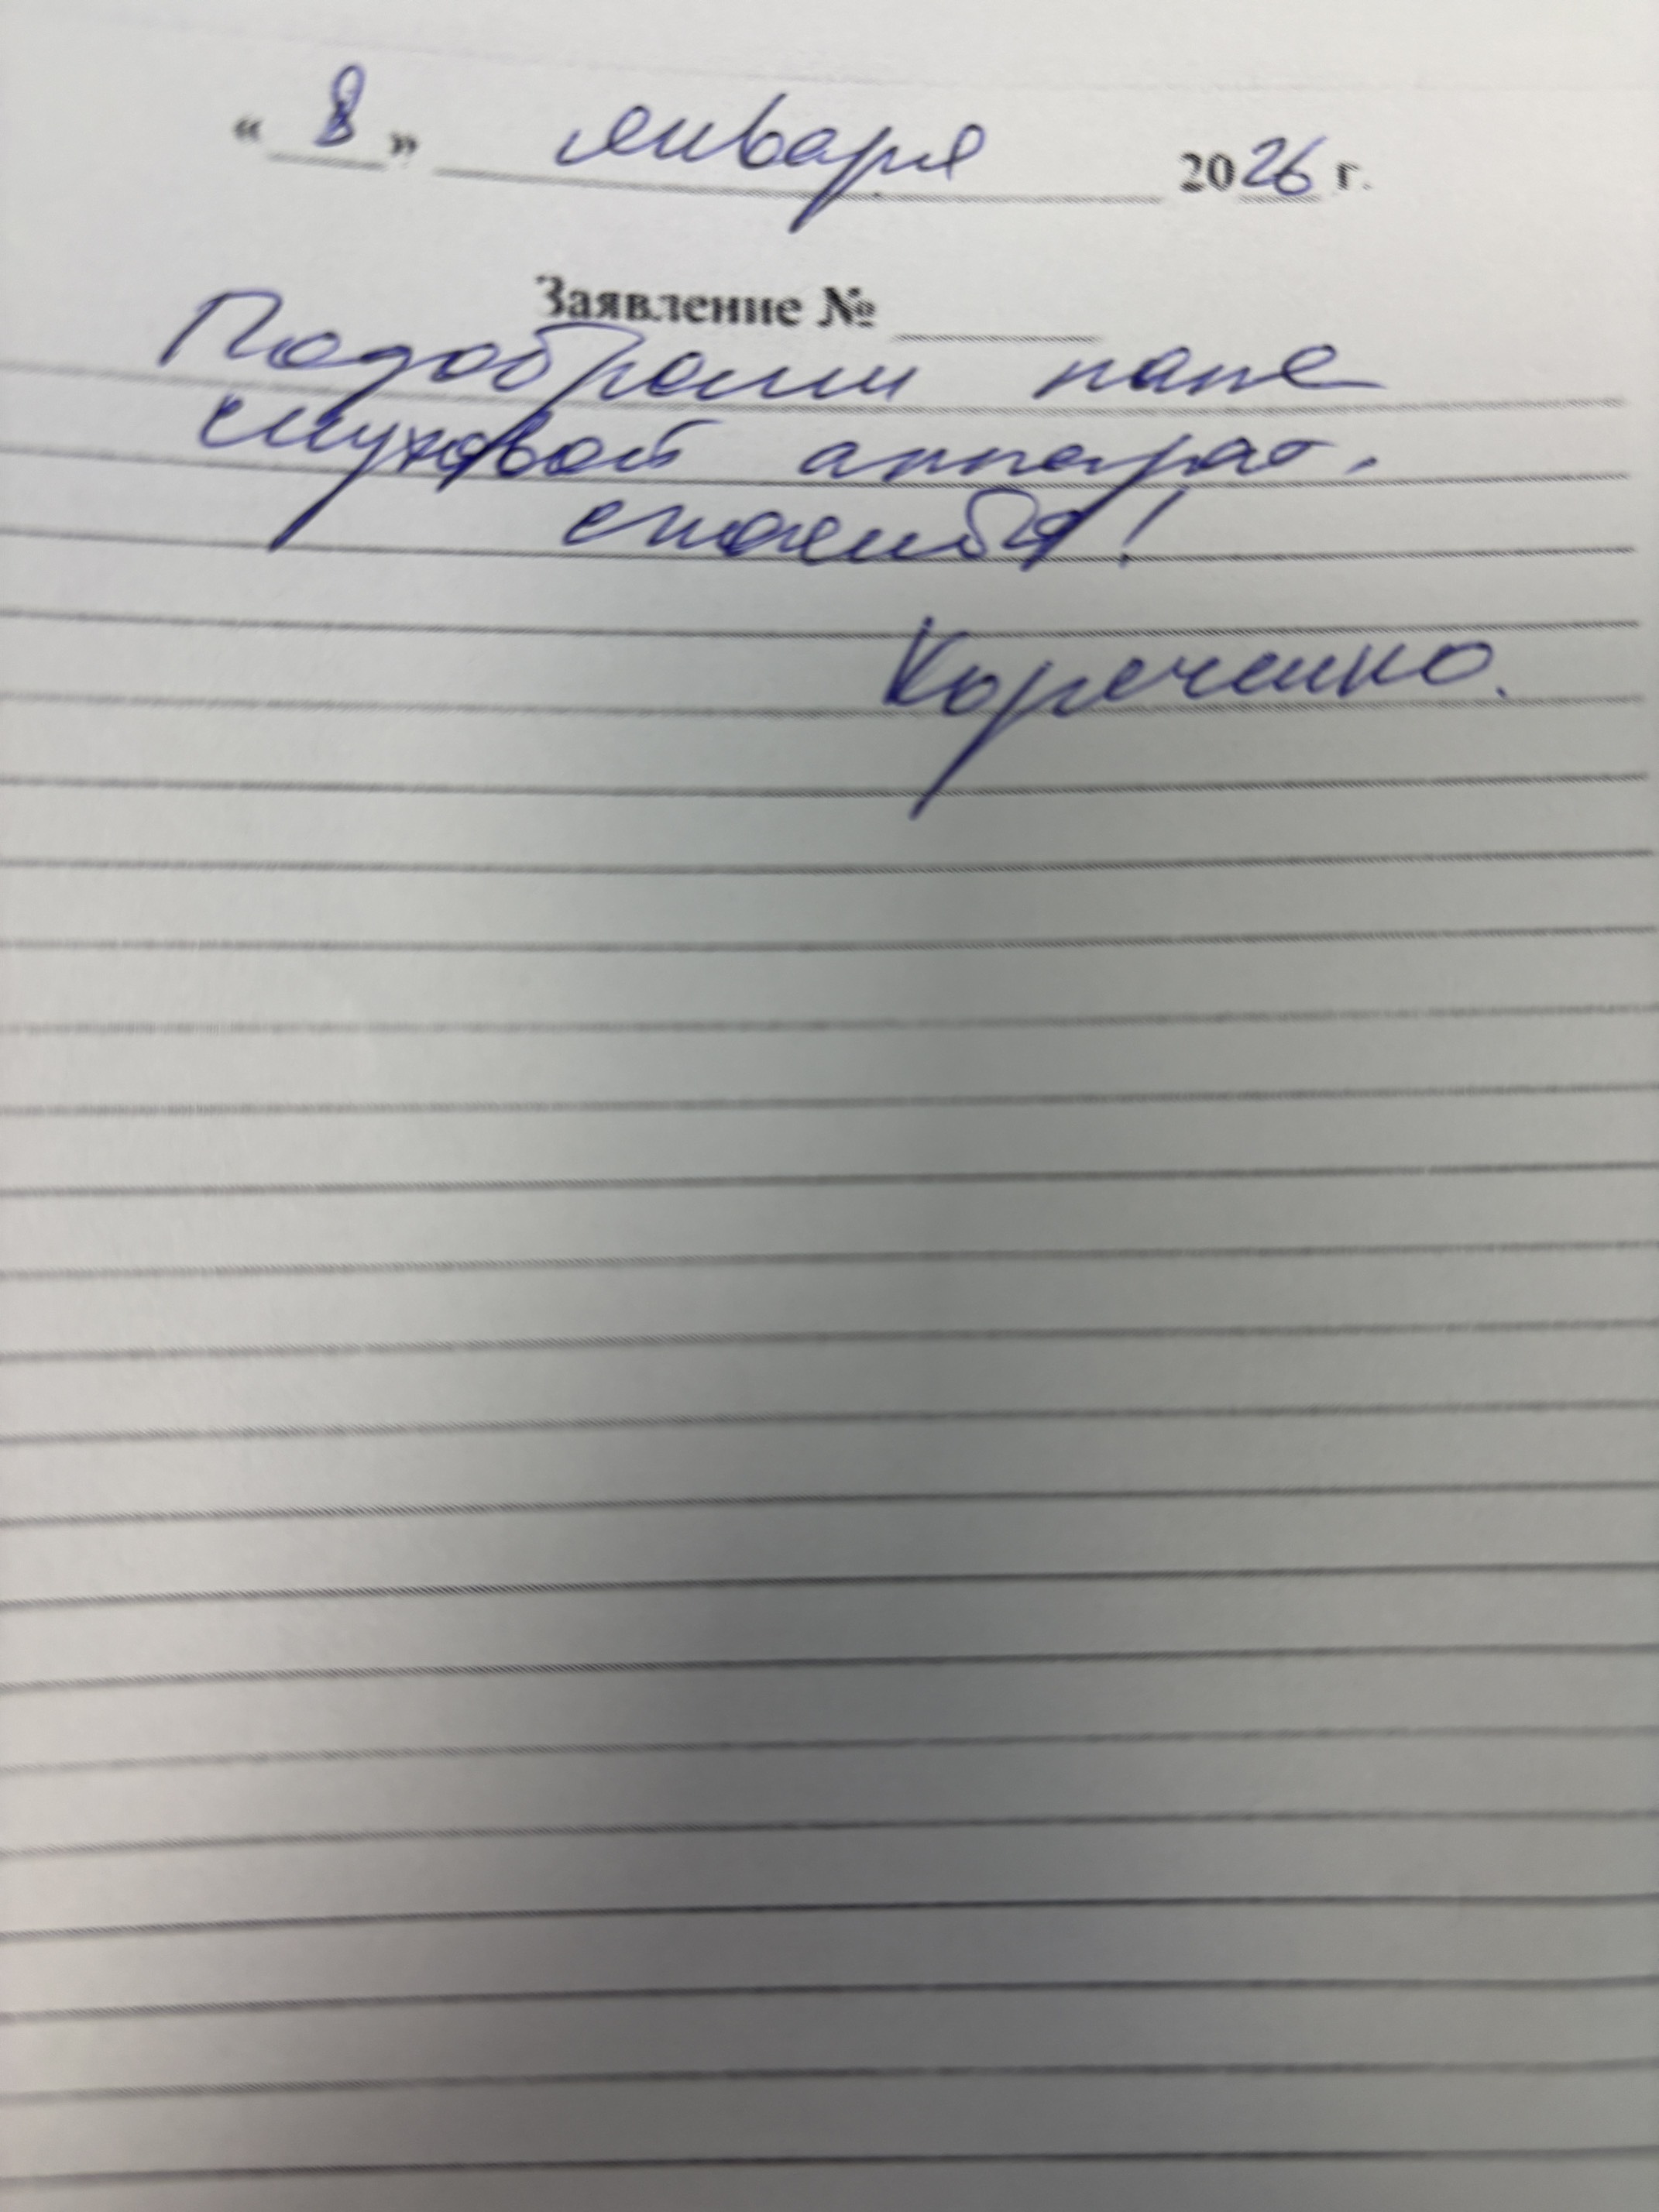 « 8 » января 2026 г.
Заявление № ____
Подобрали папе
слуховой аппарат.
спасибо!